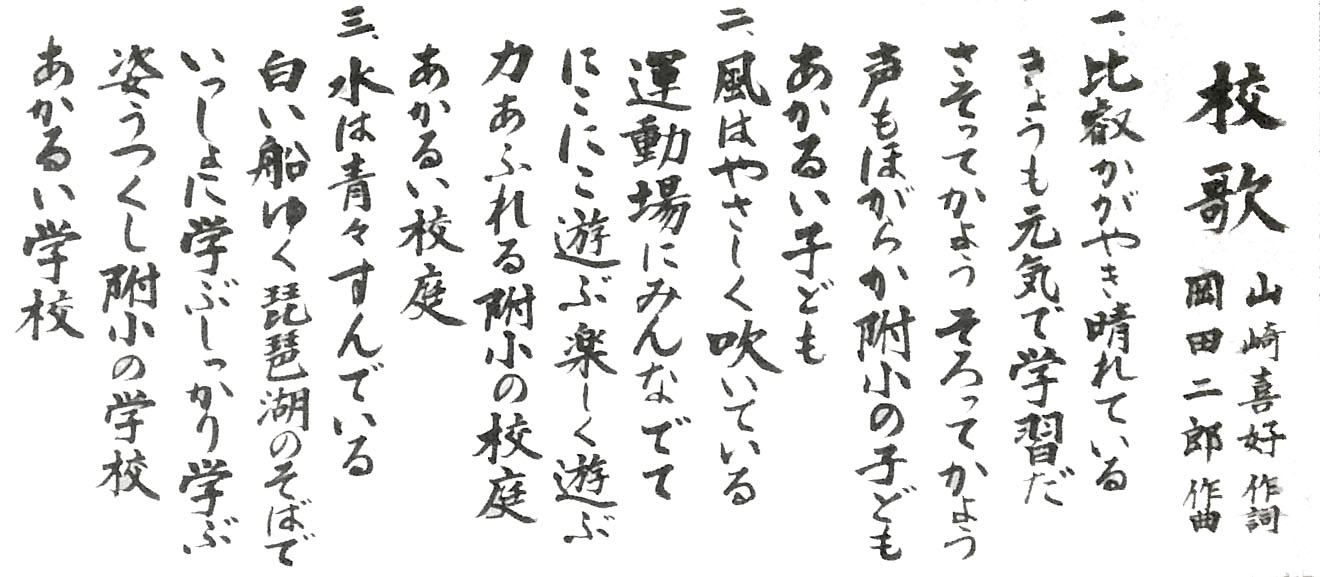 校歌
山崎喜好 作詞
岡田二郎 作曲
一、比叡かがやき晴れている
きょうも元気で学習だ
さそってかよう そろってかよう
声もほがらか附小の子ども
あかるい子ども
二、風はやさしく吹いている
運動場にみんなでて
にこにこ遊ぶ楽しく遊ぶ
力あふれる附小の校庭
あかるい校庭
三、水は青々すんでいる
白い船ゆく琵琶湖のそばで
いっしょに学ぶしっかり学ぶ
姿うつくし附小の学校
あかるい学校